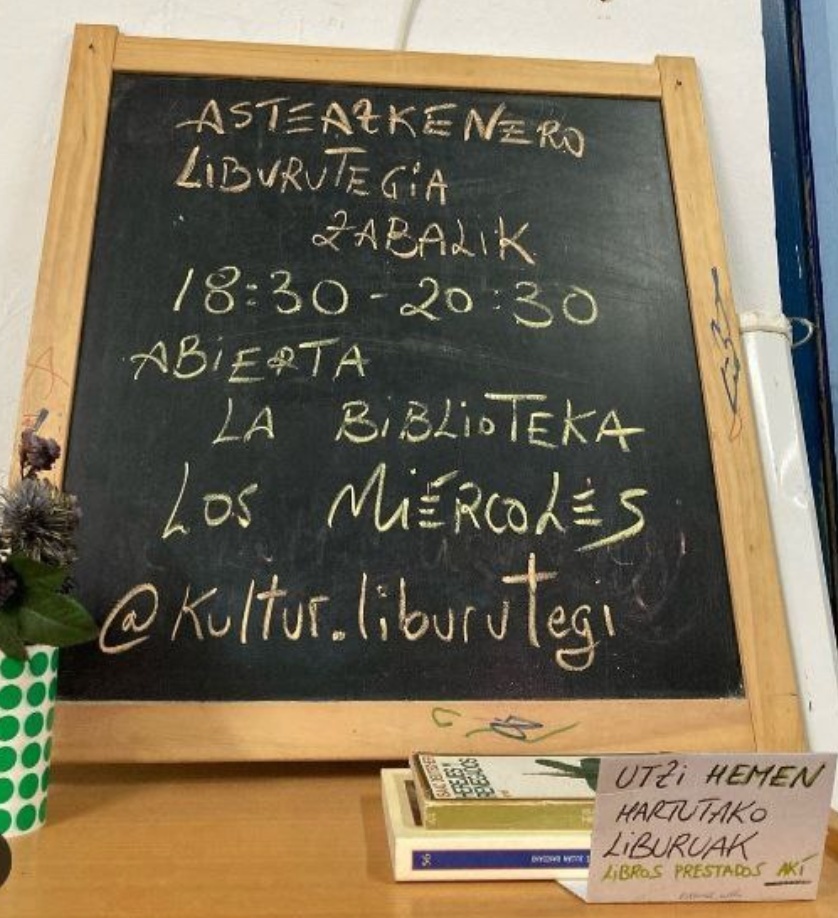 ASTEAZKENERO
LIBURUTEGIA
ZABALIK
18:30 - 20:30
ABIERTA
LA BIBLIOTEKA
LOS MIÉRCOLES
@kultur.liburutegi
HEREJES Y
RENEGADOS
56
UTZI HEMEN
HARTUTAKO
LIBURUAK
LIBROS PRESTADOS AKÍ